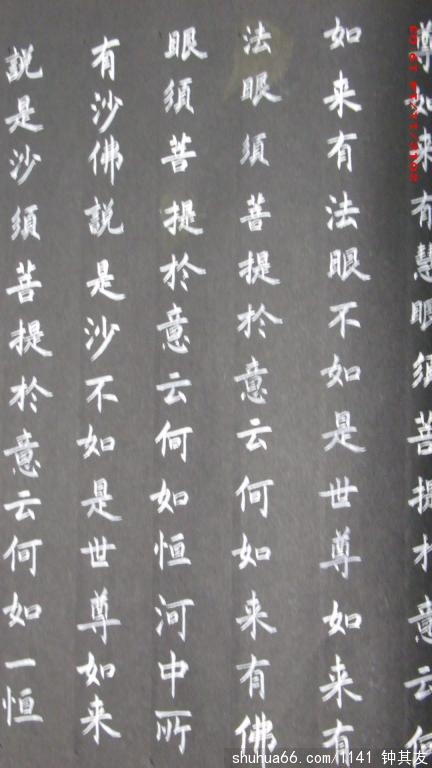 尊如来有慧眼須菩提於意云何
如来有法眼不如是世尊如来有
法眼須菩提於意云何如来有佛
眼須菩提於意云何如恒河中所
有沙佛説是沙不如是世尊如来
説是沙須菩提於意云何如一恒
shuhua66.com/1141 钟其发